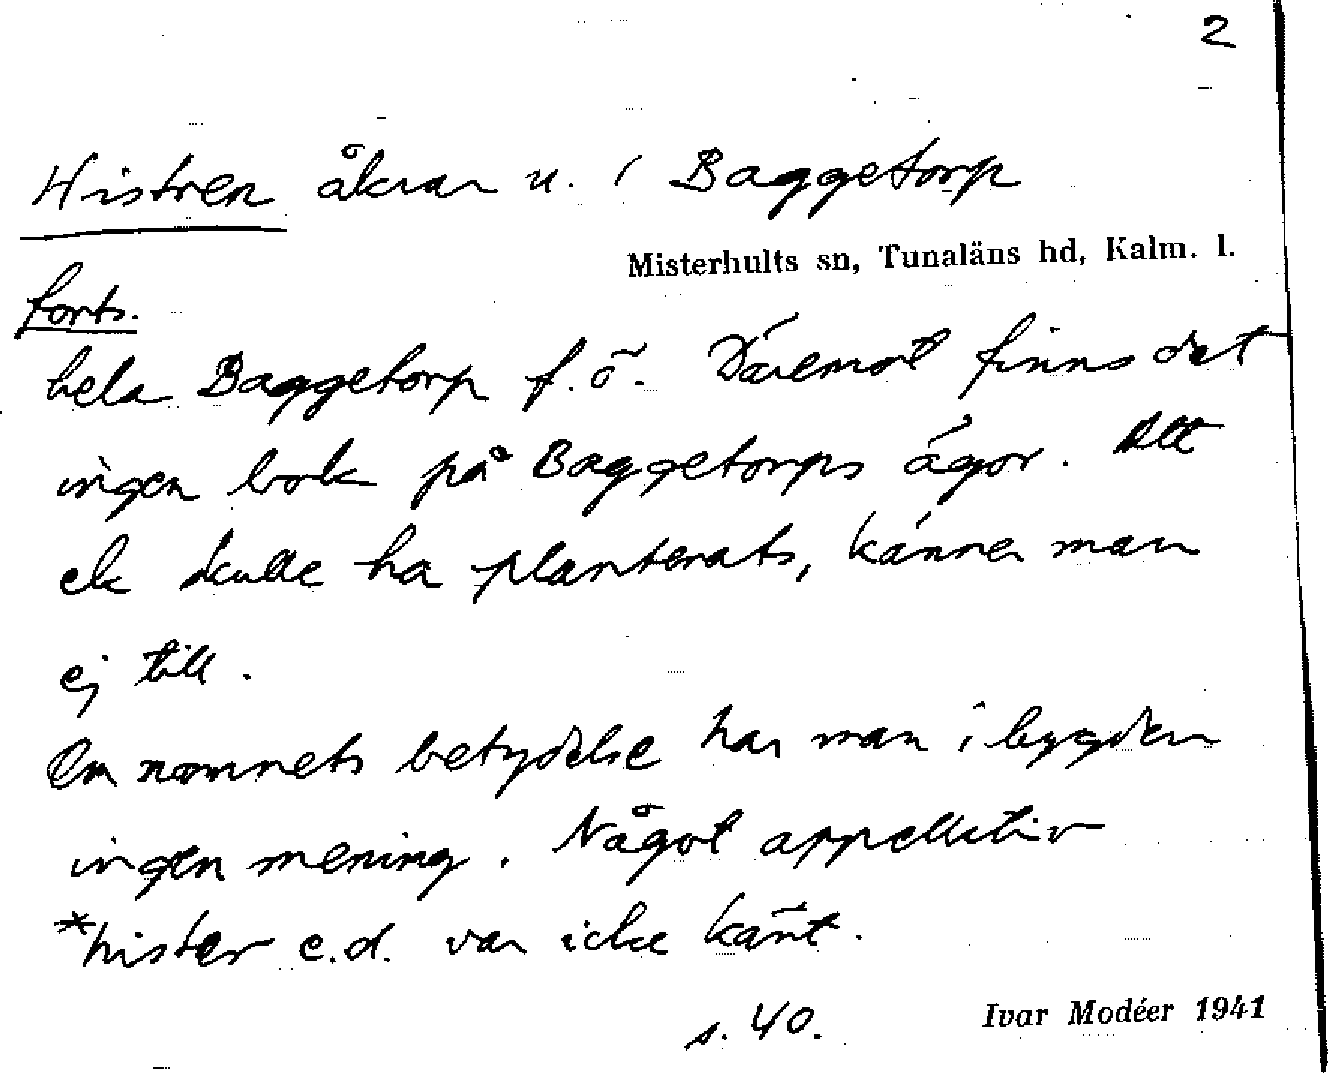 2
Histren åkrar u. i Baggetorp
Misterhults sn, Tunaläns hd, Kalm. l.
forts.
hela Baggetorp f.ö. Däremot finns det
ingen bok på Baggetorps ägor. Att
ek skulle ha planterats, känner man
ej till.
Om namnets betydelse har man i bygden
ingen mening. Något appellativ
*hister e.d. var icke känt.
s. 40.
Ivar Modéer 1941